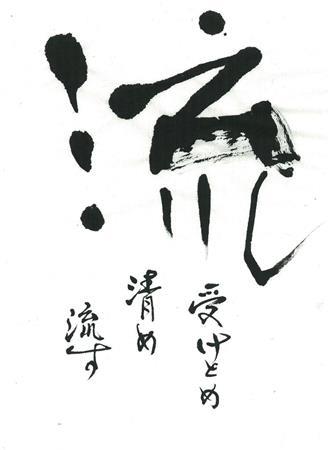 流
受けとめ
清め
流す